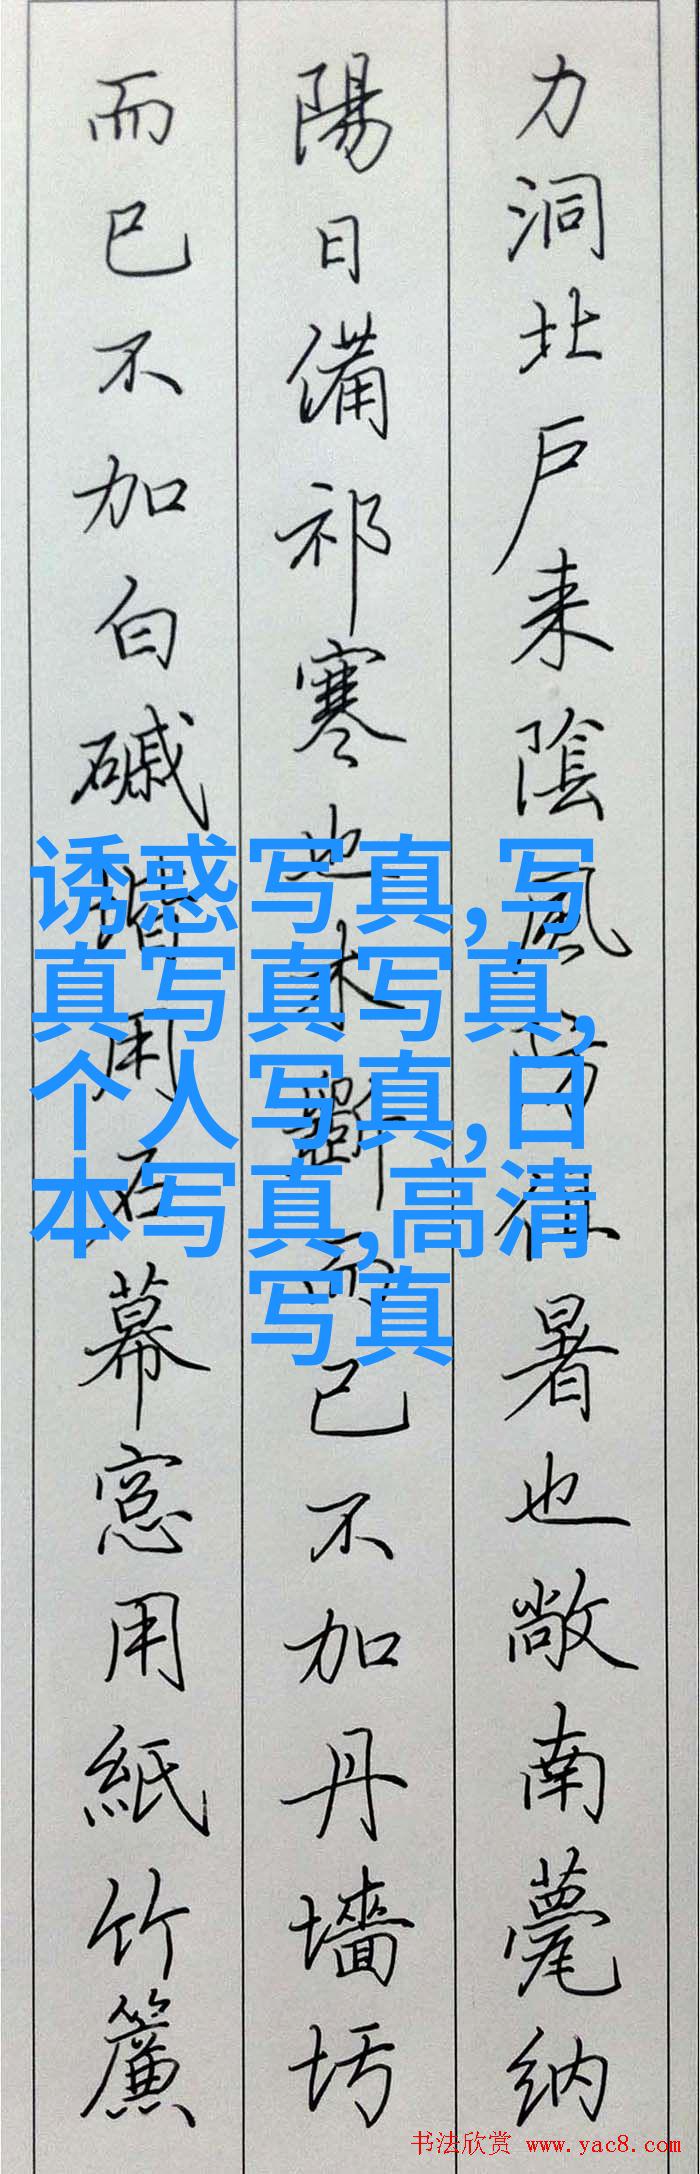 力洞北戶来陰風防徂暑也敞南甍纳
陽日備祁寒也木斲而已不加丹墻圬
而已不加白磩階用石幕窓用紙竹簾
诱惑写真,写
真写真写真,
个人写真,日
本写真,高清
写真
书法欣赏 www.yac8.com